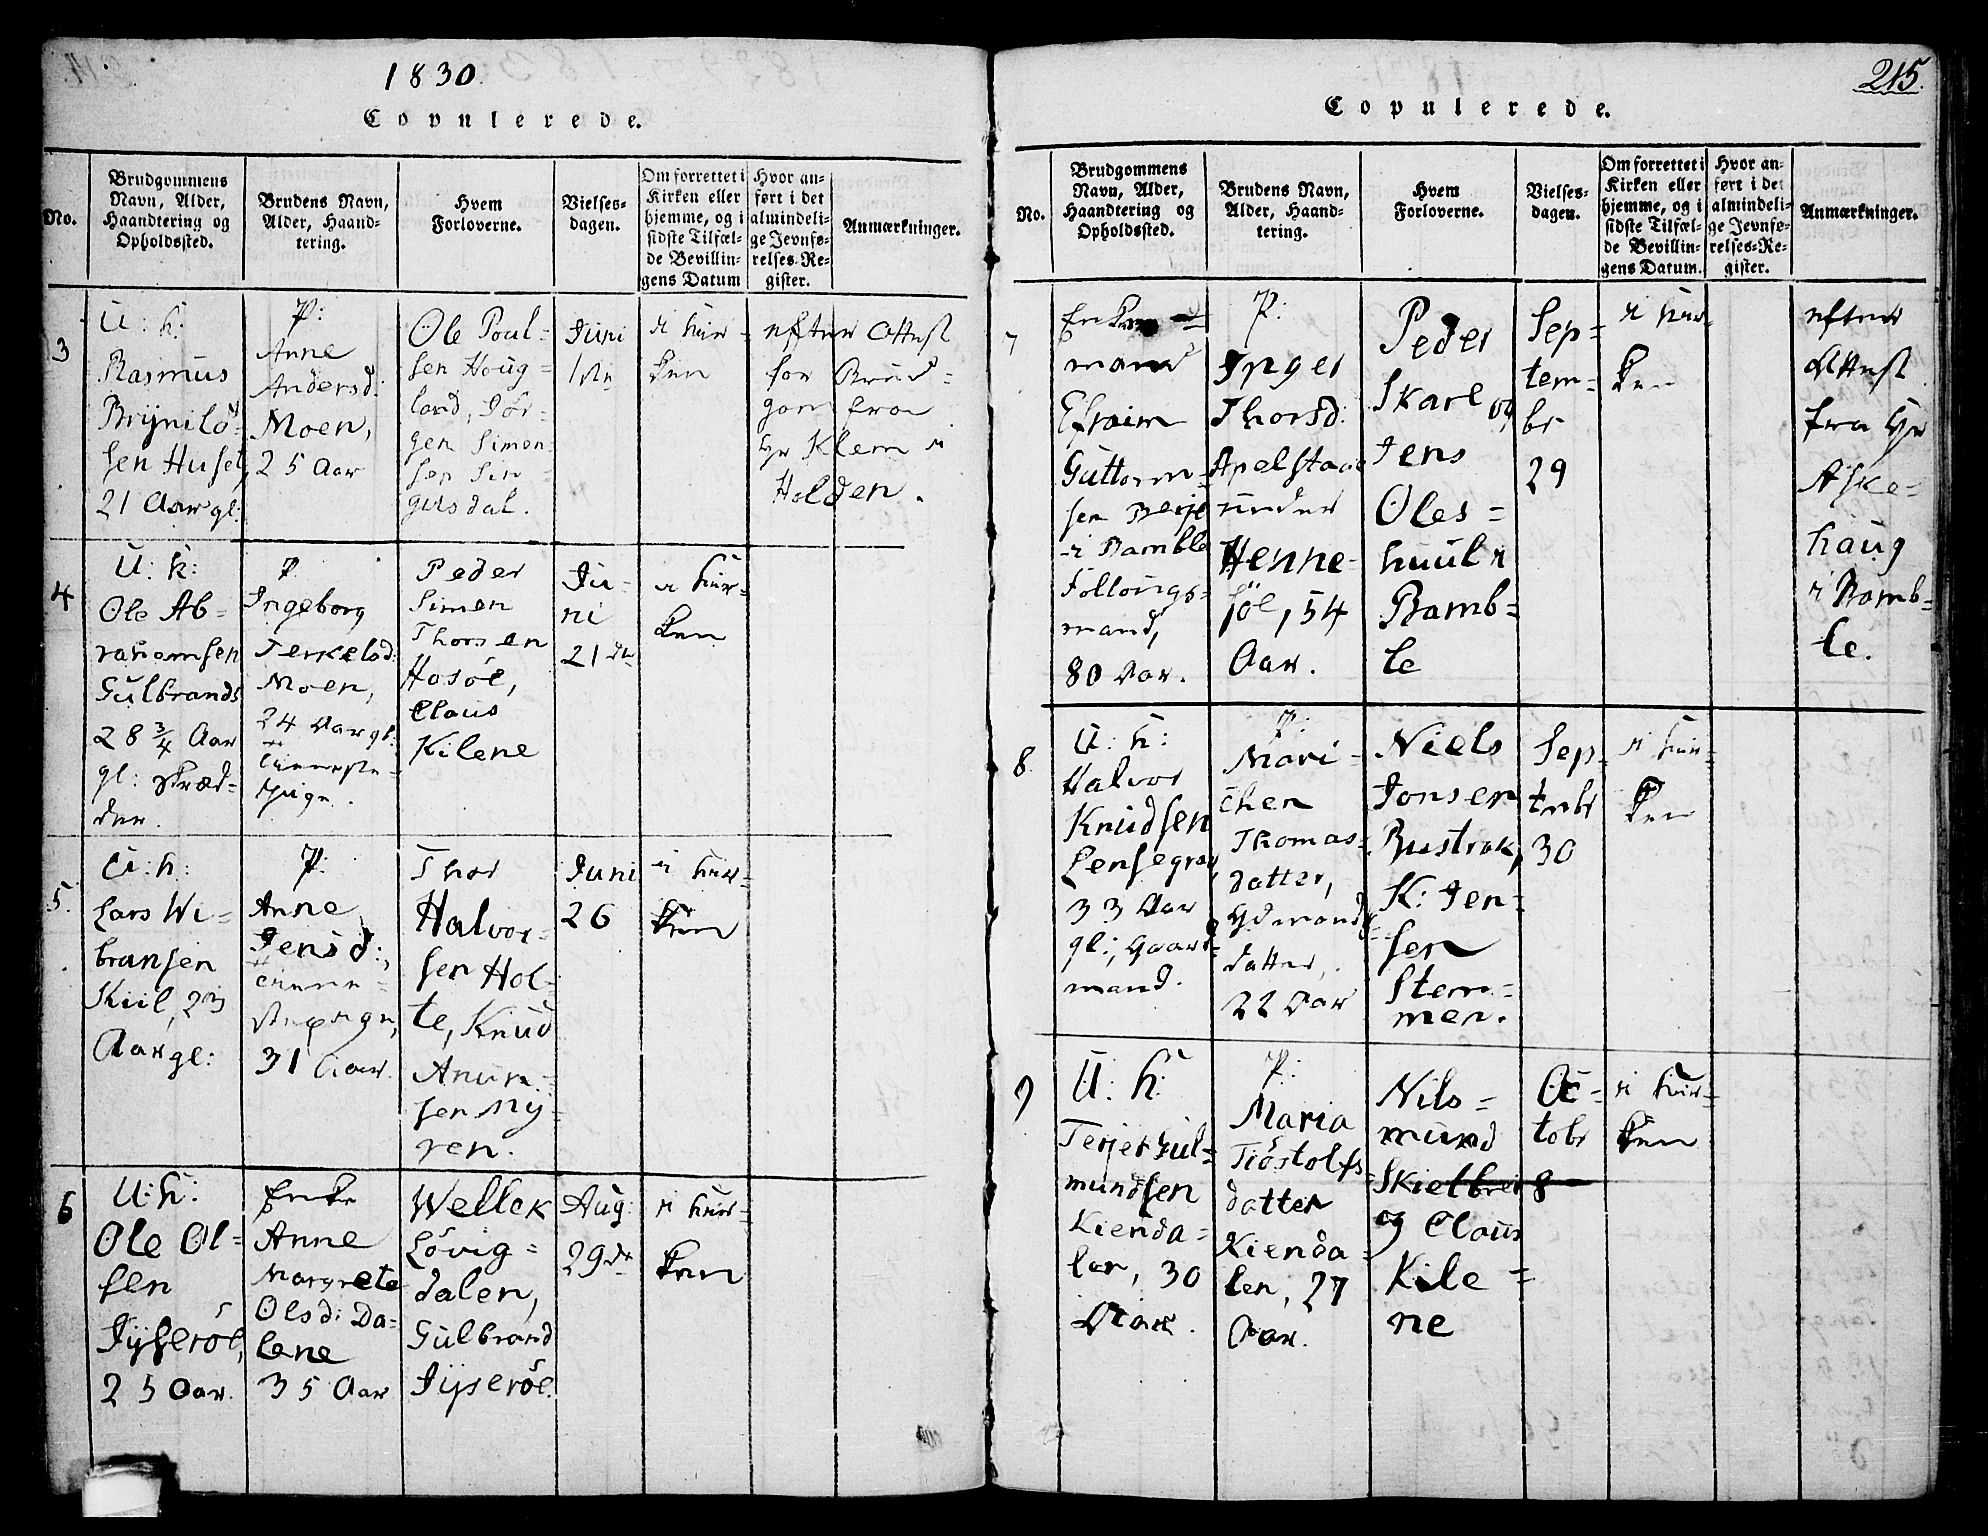 1830.
Copulerede.
No.
Brudgommens
Navn, Alder,
Haandtering og
Opholdssted.
Brudens Navn,
Alder, Haand-
tering.
Hvem
Forloverne.
Vielses-
dagen.
Om forrettet i
Kirken eller
hjemme, og i
sidste Tilfæl-
de Bevillin-
gens Datum
Hvor an-
ført i det
almindeli-
ge Jevnfø-
relses-Re-
gister.
Anmærkninger.
3
U: k:
Rasmus
Brynilds
sen Huset,
21 Aar gl:
P:
Anne
Andersd:
Moen,
25 Aar
Ole Poul-
sen Houg=
land, Jör-
gen Simon
sen
gusdal.
Juni
1ste
i Kir=
ken
efter Attest
for Brud=
gom fra
Hr Klem i
Holden.
4
U: k:
Ole Ab=
rahamsen
Gulbrands
28 3/4 Aar
gl: Skræd=
der.
P.
Ingeborg
Terkelsd:
Moen,
24 Aar gl:
tieneste=
Pige.
Peder
Simen
Thorsen
Hosöe,
Claus
Kilene
Ju=
ni
21de
i Kir=
ken
5.
U: k:
Lars Wi=
bransen
Kiil, 23
Aar gl:
P:
Anne
Jensd:,
tiene=
stepige,
31 Aar.
Thor
Halvor=
sen Hol=
te, Knud
Anun=
sen My=
ren.
Juni
26
i Kir=
ken
6
U: k:
Ole Ol=
sen
Jyseröe,
25 Aar.
Enke
Anne
Margrete
Olsd: Da=
lene
35 Aar
Wellek
Lövig=
dalen,
Gulbrand
Jyseröe.
Aug:
29de
i Kir=
ken
215.
Copulerede.
No.
Brudgommens
Navn, Alder,
Haandtering og
Opholdssted.
Brudens Navn,
Alder, Haand-
tering.
Hvem
Forloverne.
Vielses-
dagen.
Om forrettet i
Kirken eller
hjemme, og i
sidste Tilfæl-
de Bevillin-
gens Datum.
Hvor an-
ført i det
almindeli-
ge Jevnfø-
relses-Re-
gister.
Anmærkninger.
7
Enke=
mand
Efraim
Guttorm=
sen Berje
i Bamble
Follougs=
mand,
80 Aar.
P:
Inger
Thorsd:
Apelstaae
under
Henne=
söe, 54
Aar.
Peder
Skarl og
Jens
Oles=
huul i
Bamb=
le
Sep=
tem=
br
29
i Kir=
ken
efter
Attest
fra Hr
Aske=
haug
i Bamb=
le.
8.
U: k:
Halvor
Knudsen
Lensegrav,
33 Aar
gl:, Gaard=
mand.
P:
Mari=
chen
Thomas=
datter,
Gdmands
datter,
22 Aar
Niels
Jonsen
Bustrak,
K: Jen=
sen
Stem=
men.
Sep=
tebr
30
i Kir=
ken
9
U: k:
Terjer Gul=
mundsen
Kienda=
len, 30
Aar.
P:
Maria
Tiöstolfs=
datter
Kienda=
len, 27
Aar.
Nils=
mund
Skielbrei
og Claus
Kile=
ne
Oc=
tobr
8
i Kir=
ken